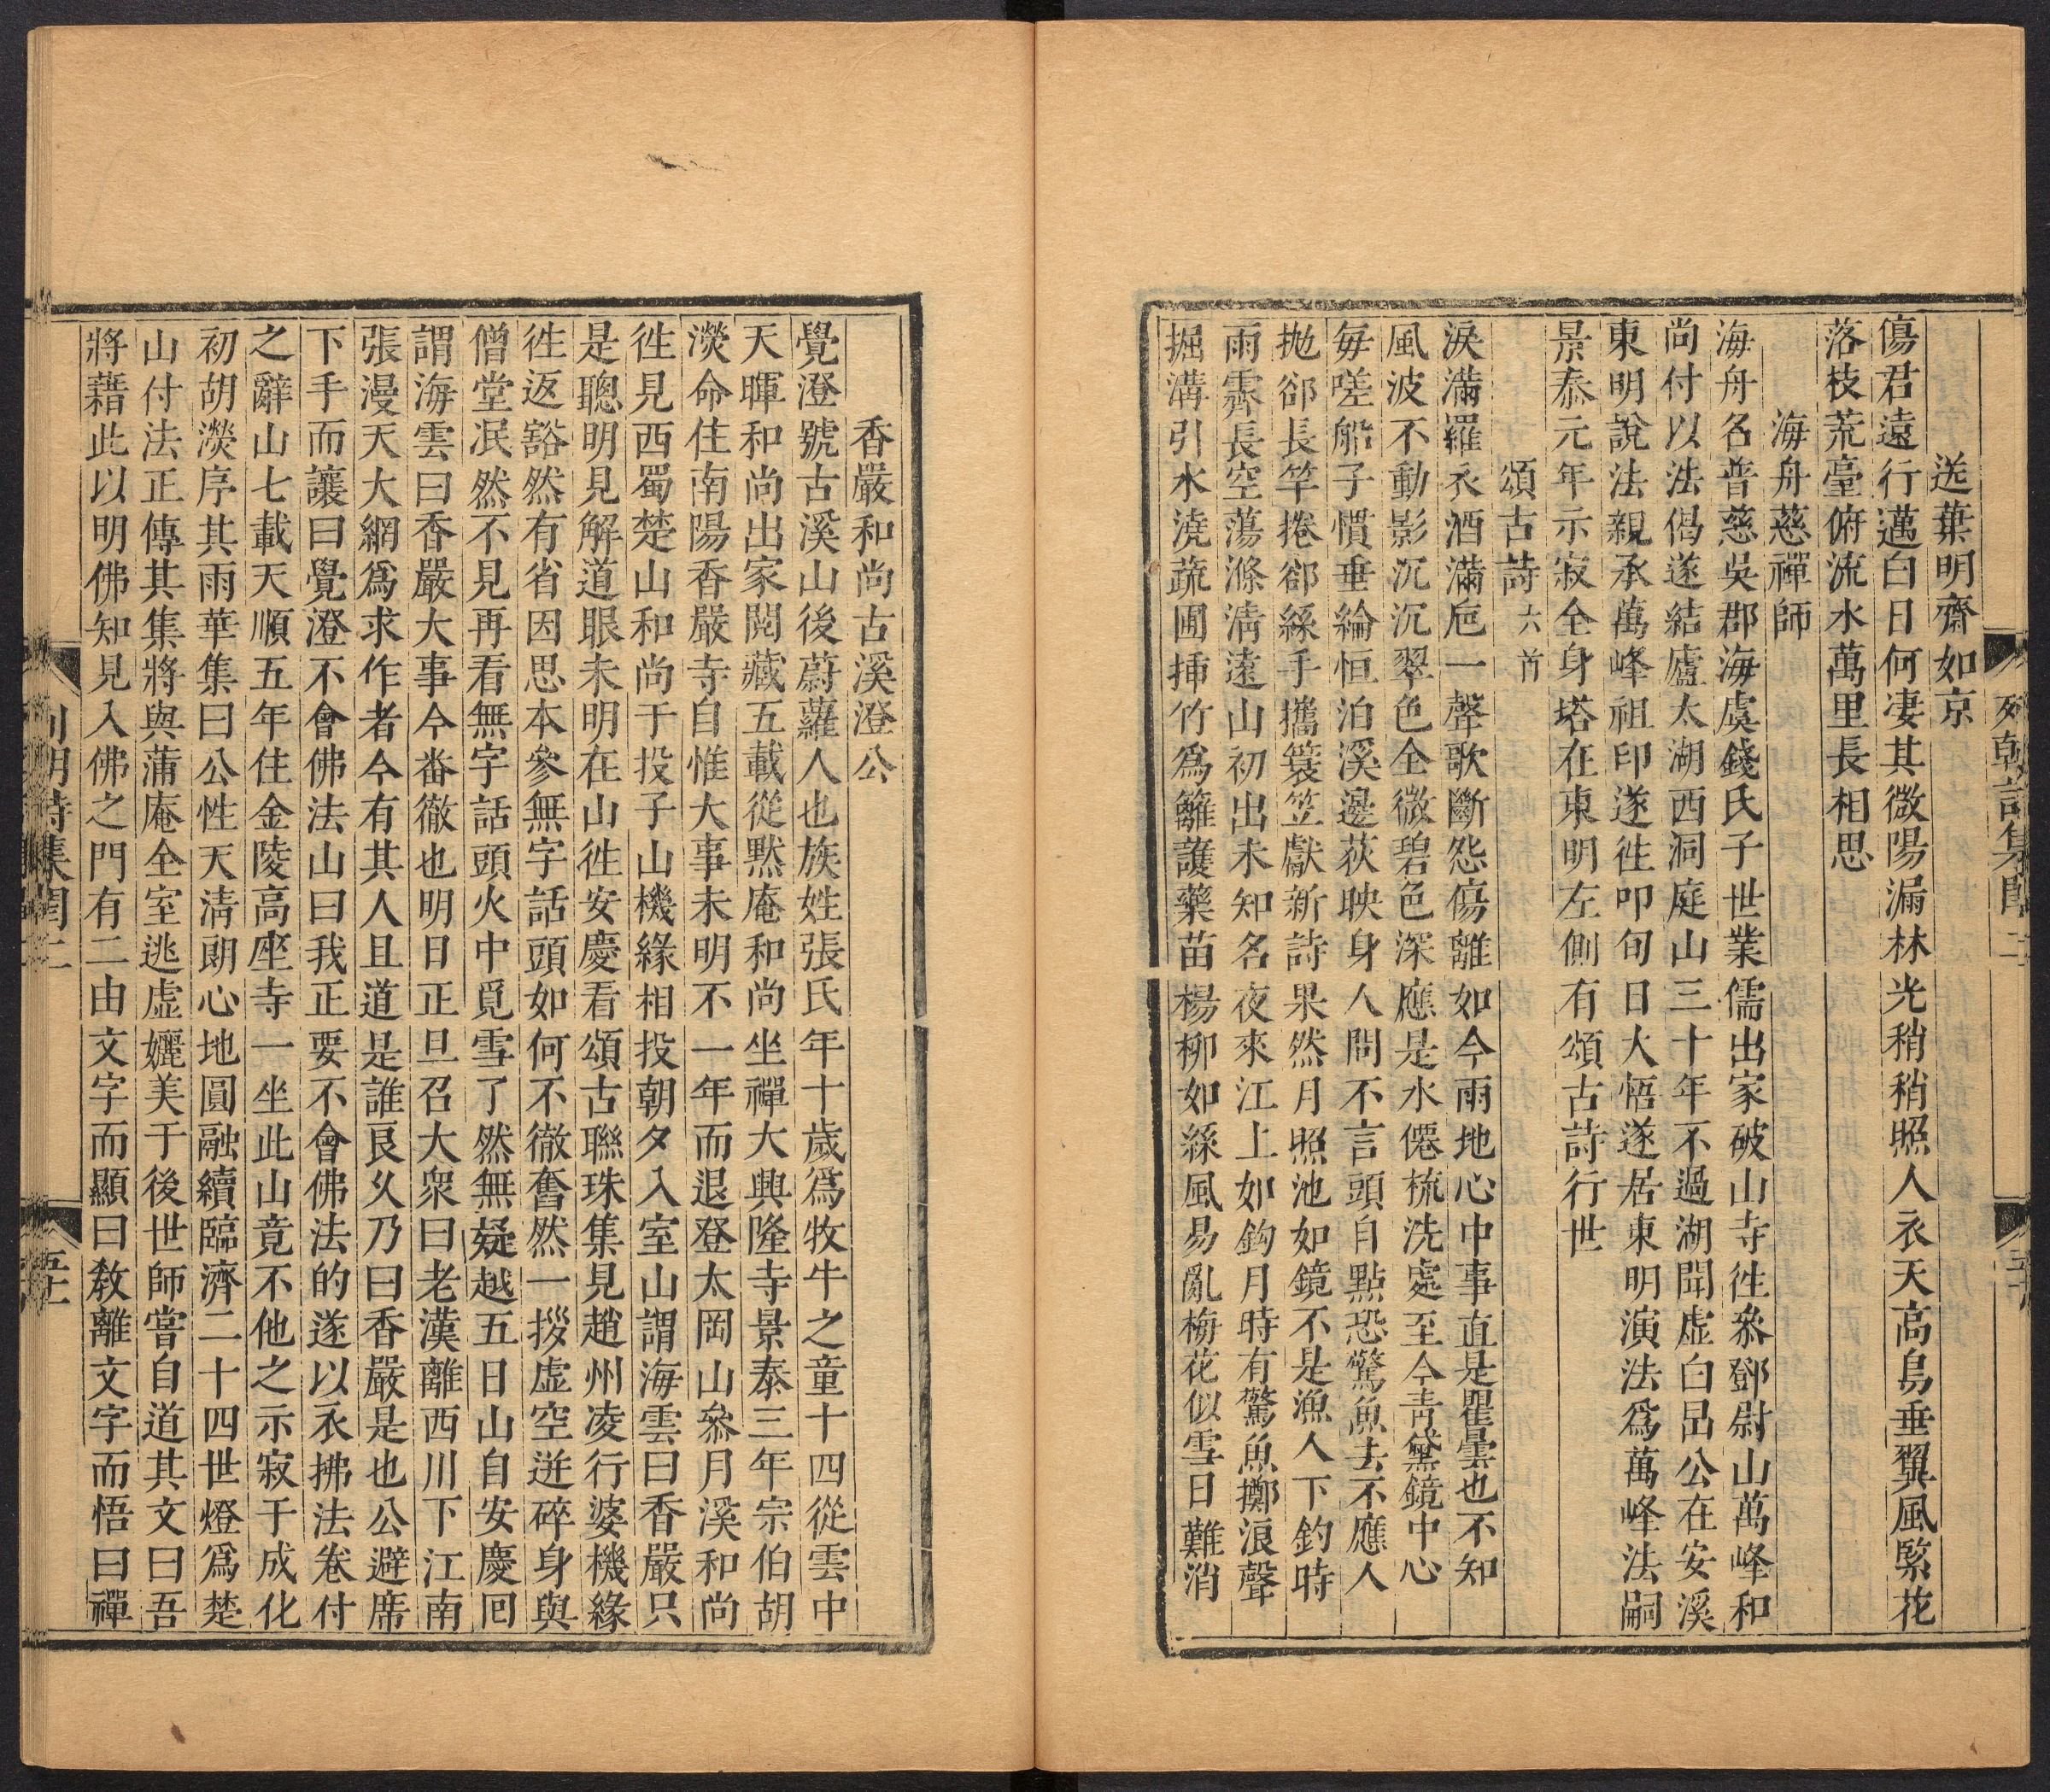 送葉明齋如京
傷君遠行邁白日何凄其微陽漏林光稍稍照人衣天高鳥垂翼風緊花
落枝荒臺俯流水萬里長相思
海舟慈禪師
海舟名普慈吳郡海虞錢氏子世業儒出家破山寺徃叅鄧尉山萬峰和
尚付以法偈遂結廬太湖西洞庭山三十年不過湖聞虛白旵公在安溪
東明說法親承萬峰祖印遂徃叩旬日大悟遂居東明演法爲萬峰法嗣
景泰元年示寂全身塔在東明左側有頌古詩行世
頌古詩六首
淚滿羅衣酒滿巵一聲歌斷怨傷離如今雨地心中事直是瞿曇也不知
風波不動影沉沉翠色全微碧色深應是水僊梳洗處至今靑黛鏡中心
每嗟船子慣垂綸恒泊溪邊荻映身人問不言頭自點恐驚魚去不應人
拋郤長竿捲郤絲手攜簑笠獻新詩果然月照池如鏡不是漁人下釣時
雨霽長空蕩滌淸遠山初出未知名夜來江上如鈎月時有驚魚擲浪聲
掘溝引水澆蔬圃揷竹爲籬護藥苗楊柳如絲風易亂梅花似雪日難消
列朝詩集閏二
香嚴和尚古溪澄公
覺澄號古溪山後蔚蘿人也族姓張氏年十歲爲牧牛之童十四從雲中
天暉和尚出家閱藏五載從默庵和尚坐禪大興隆寺景泰三年宗伯胡
濙命住南陽香嚴寺自惟大事未明不一年而退登太岡山叅月溪和尚
徃見西蜀楚山和尚于投子山機緣相投朝夕入室山謂海雲曰香嚴只
是聰明見解道眼未明在山徃安慶看頌古聯珠集見趙州凌行婆機緣
徃返豁然有省因思本參無字話頭如何不徹奮然一拶虛空迸碎身與
僧堂泯然不見再看無字話頭火中覓雪了然無疑越五日山自安慶囘
謂海雲曰香嚴大事今畨徹也明日正旦召大衆曰老漢離西川下江南
張漫天大網爲求作者今有其人且道是誰良久乃曰香嚴是也公避席
下手而讓曰覺澄不會佛法山曰我正要不會佛法的遂以衣拂法卷付
之辭山七載天順五年住金陵高座寺一坐此山竟不他之示寂于成化
初胡濙序其雨華集曰公性天淸朗心地圓融續臨濟二十四世燈爲楚
山付法正傳其集將與蒲庵全室逃虛孋美于後世師嘗自道其文曰吾
將藉此以明佛知見入佛之門有二由文字而顯曰敎離文字而悟曰禪
列朝詩集閏二